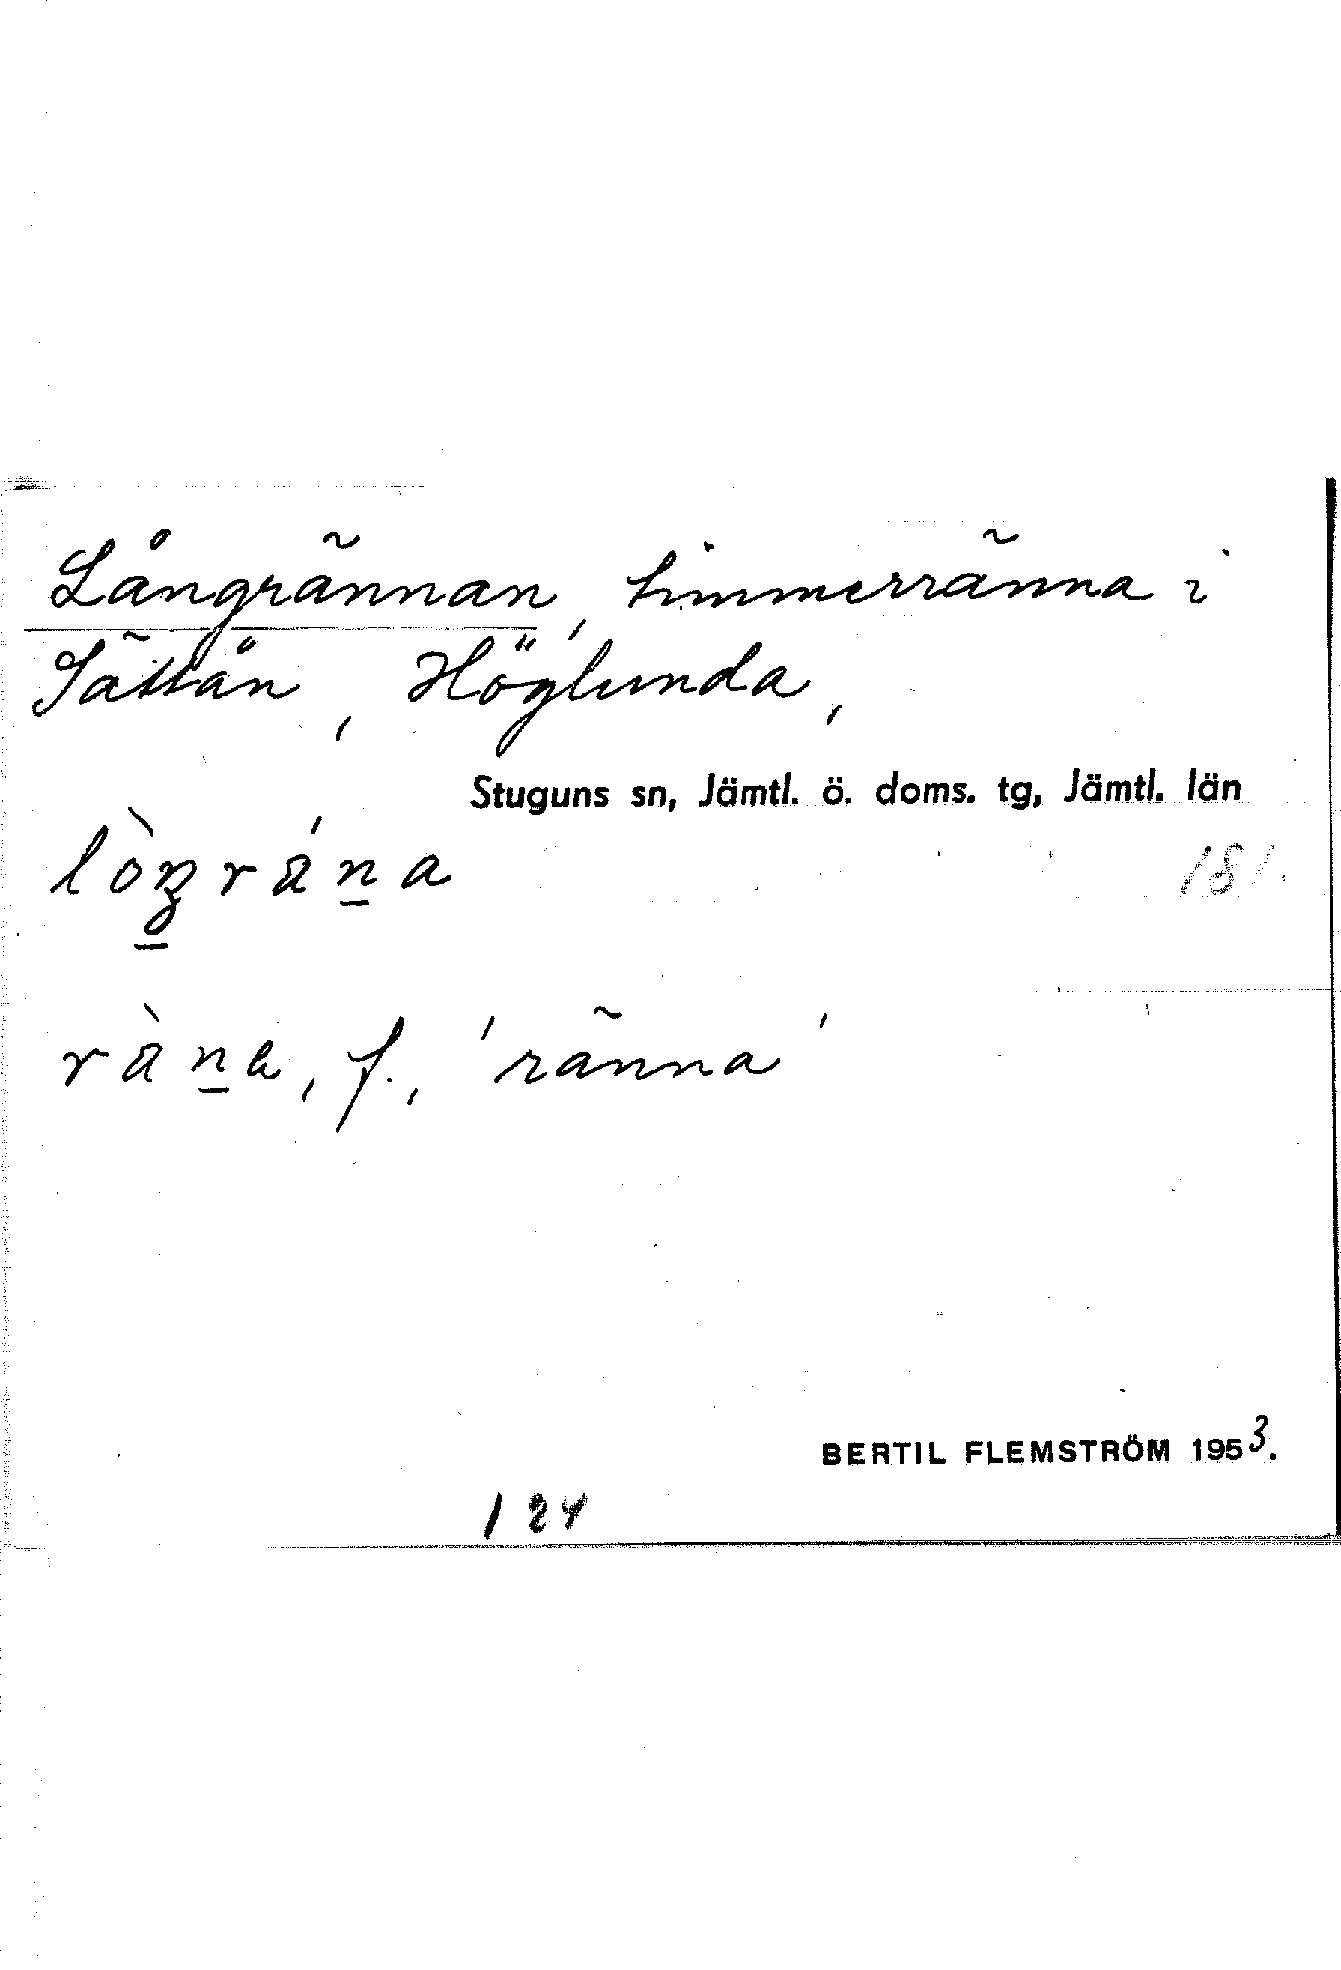 Långrännan, timmerränna i
Sättån, Höglunda,
Stuguns sn, Jämtl. ö. doms. tg, Jämtl. län
lòŋråńa
181.
ràna, f., 'ränna'
BERTIL FLEMSTRÖM 1953.
124